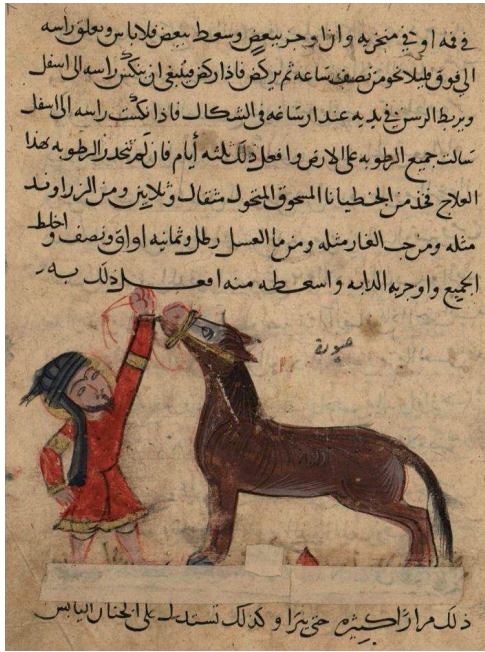 في فمه او في منخريه وان اوجر ببعض وسعط ببعض فلا باس ويعلق راسه
الى فوق قليلا نحو من نصف ساعه ثم يركض فاذا ركض فينبغي ان ينكس راسه الى اسفل
ويربط الرسن في يديه عند ارساغه في الشكال فاذا نكست راسه الى اسفل
سالت جميع الرطوبه على الارض وافعل ذلك ثلثه أيام فان لم تنحدر الرطوبه بهذا
العلاج فخذ من الجنطيانا المسحوق المنخول مثقال وثلاثين ومن الزراوند
مثله ومن حب الغار مثله ومن ما العسل رطل وثمانيه اواق ونصف واخلط
الجميع واوجر به الدابه واسعطه منه افعل ذلك به
صورة
ذلك مرارًا كثيره حتى يبرا وكذلك تستدل على الخنان اليابس